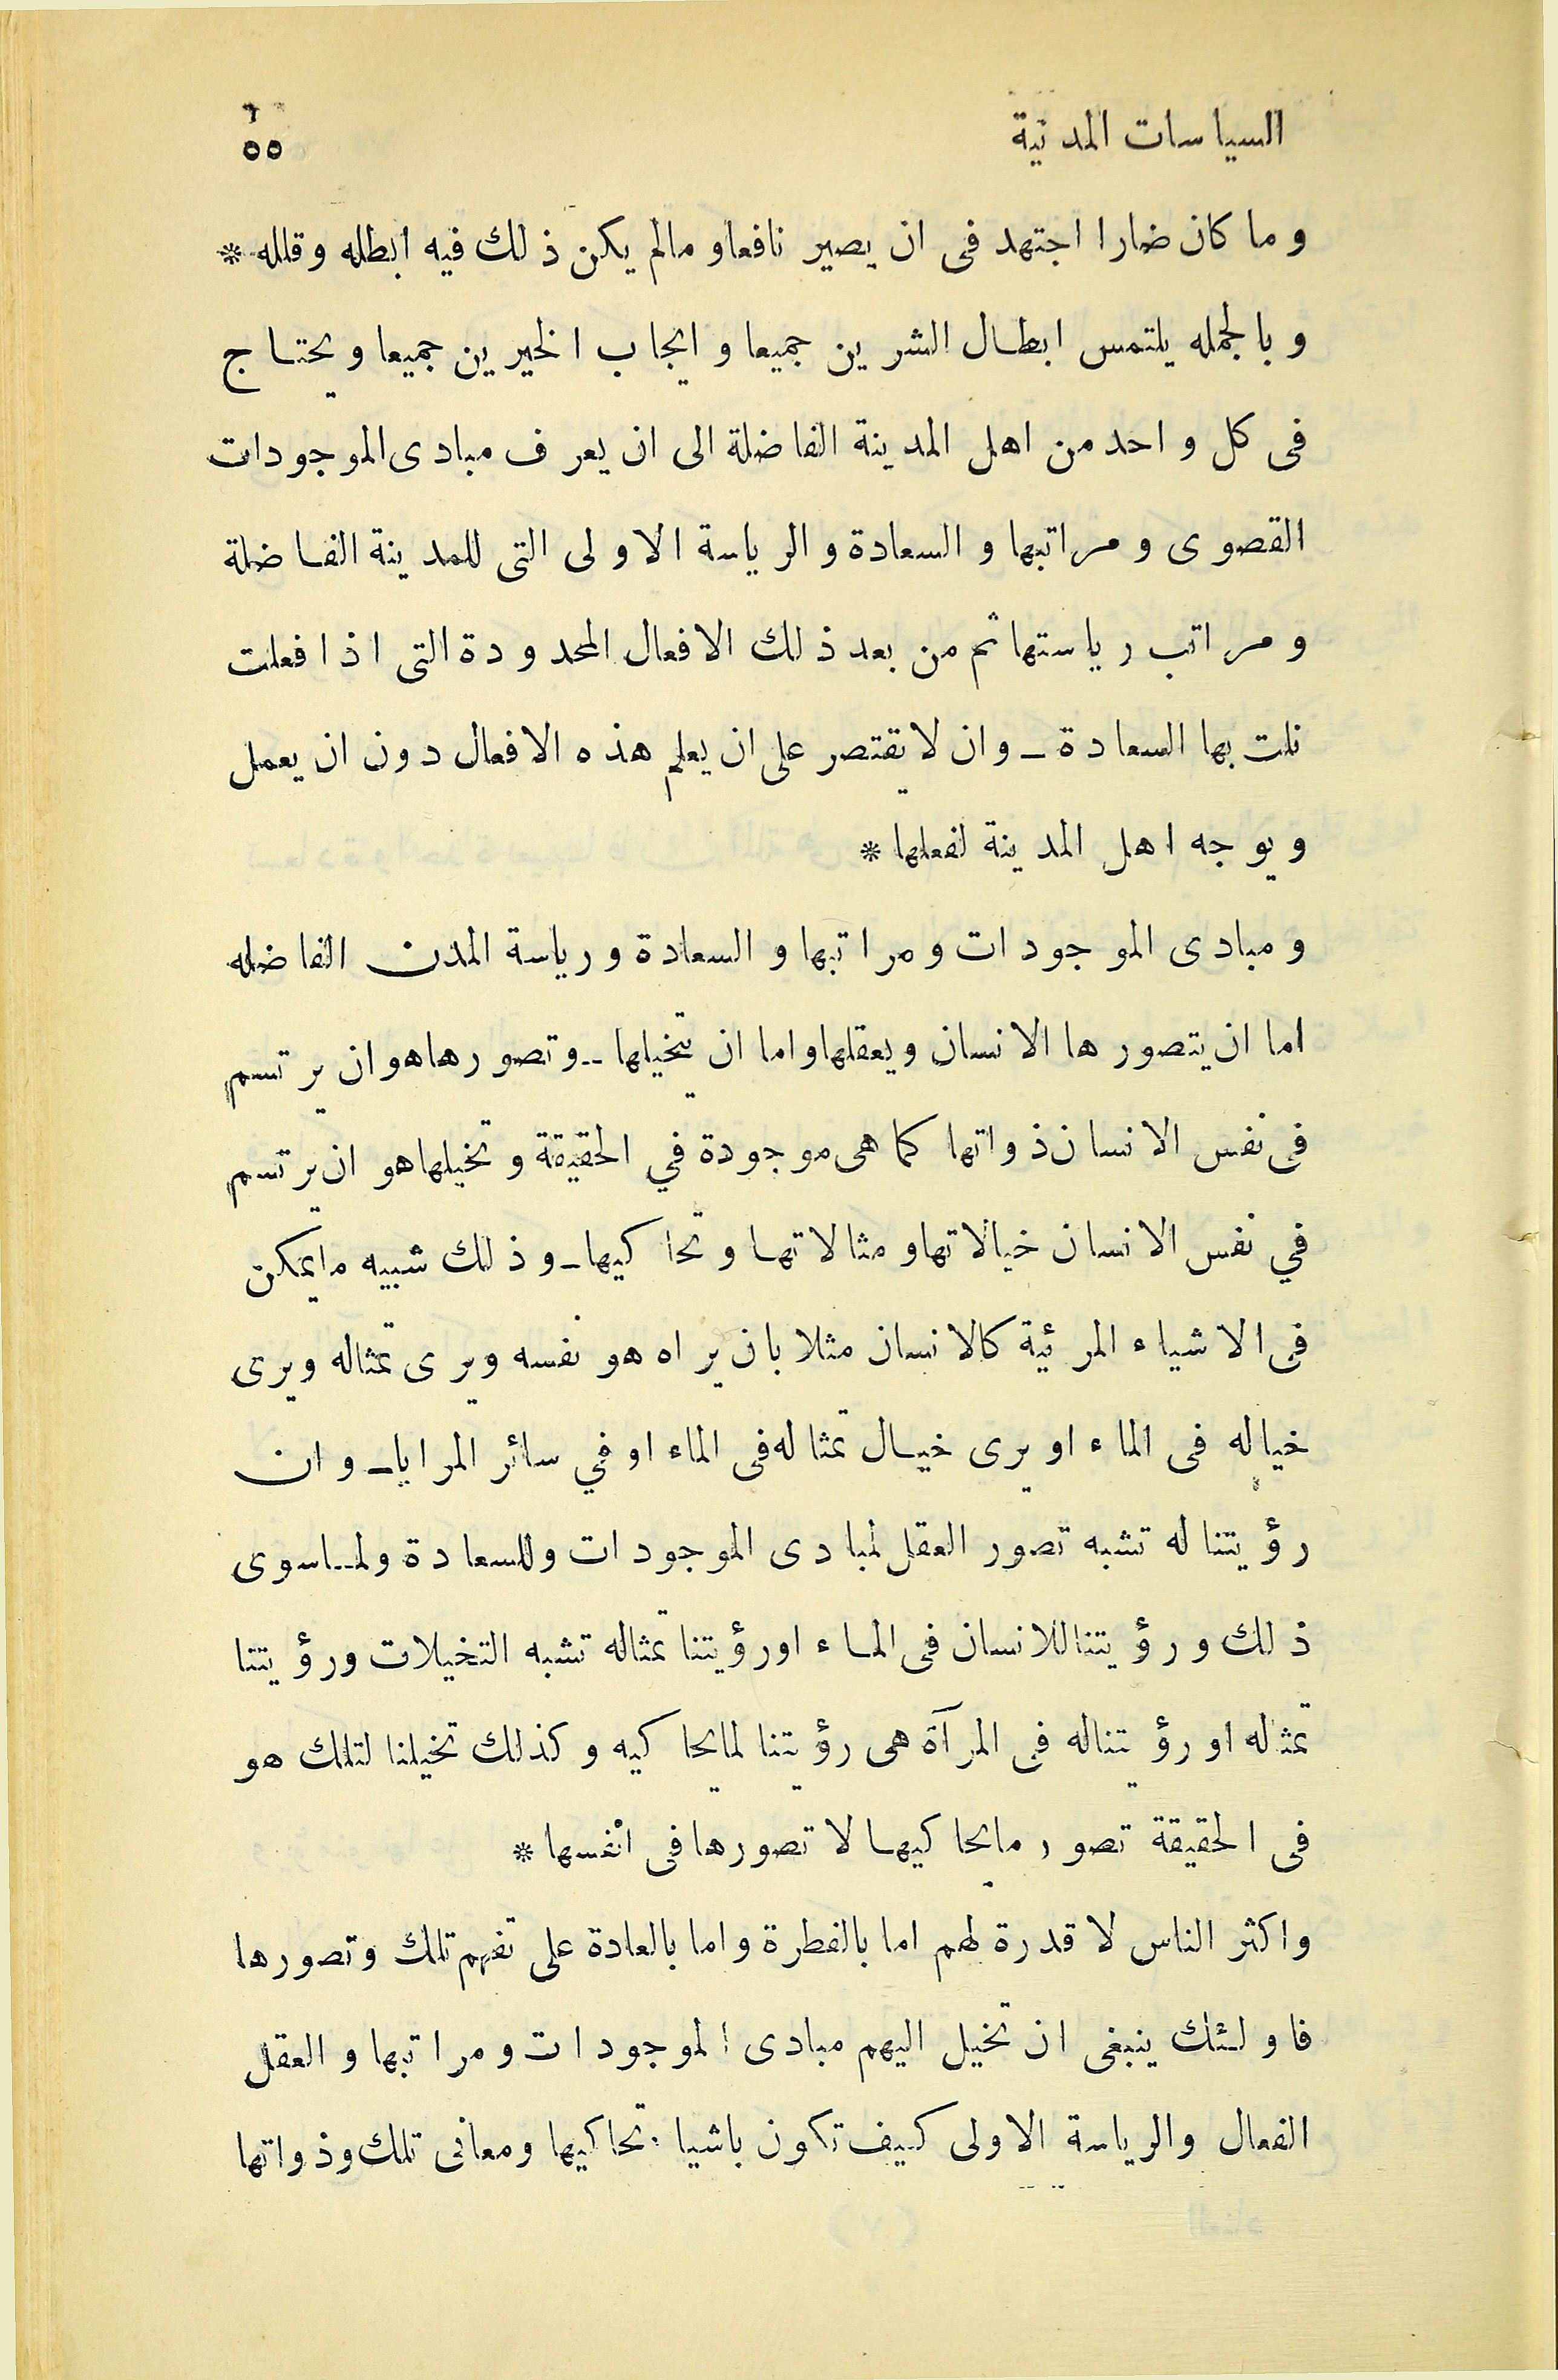 السياسات المدنية ٥٥
وما كان ضارا اجتهد فى ان يصير نافعا وما لم يكن ذلك فيه ابطله وقلله *
وبالجمله يلتمس ابطال الشرين جميعا وايجاب الخيرين جميعا ويحتاج
فى كل واحد من اهل المدينة الفاضلة الى ان يعرف مبادى الموجودات
القصوى ومراتبها والسعادة والرياسة الاولى التى للمدينة الفاضلة
ومراتب رياستها ثم من بعد ذلك الافعال المحدودة التى اذا فعلت
نلت بها السعادة ـ وان لا يقتصر على ان يعلم هذه الافعال دون ان يعمل
ويوجه اهل المدينة لفعلها *
ومبادى الموجودات ومراتبها والسعادة ورياسة المدن الفاضله
اما ان يتصورها الانسان ويعقلها واما ان يتخيلها ـ وتصورها هو ان يرتسم
فى نفس الانسان ذواتها كما هى موجودة في الحقيقة وتخيلها هو ان يرتسم
في نفس الانسان خيالاتها ومثالاتها وتحاكيها ـ وذلك شبيه ما يمكن
فى الاشياء المرئية كالانسان مثلا بان يراه هو نفسه ويرى تمثاله ويرى
خياله فى الماء او يرى خيال تمثاله فى الماء او في سائر المرايا ـ وان
رؤيتنا له تشبه تصور العقل لمبادى الموجودات وللسعادة ولما سوى
ذلك ورؤيتنا للانسان فى الماء او رؤيتنا تمثاله تشبه التخيلات ورؤيتنا
تمثاله او رؤيتنا له فى المرآة هى رؤيتنا لما يحاكيه وكذلك تخيلنا لتلك هو
فى الحقيقة تصور ما يحاكيها لا تصورها فى انفسها *
واكثر الناس لا قدرة لهم اما بالفطرة واما بالعادة على تفهم تلك وتصورها
فاولئك ينبغى ان تخيل اليهم مبادى الموجودات ومراتبها والعقل
الفعال والرياسة الاولى كيف تكون باشياء تحاكيها ومعانى تلك وذواتها